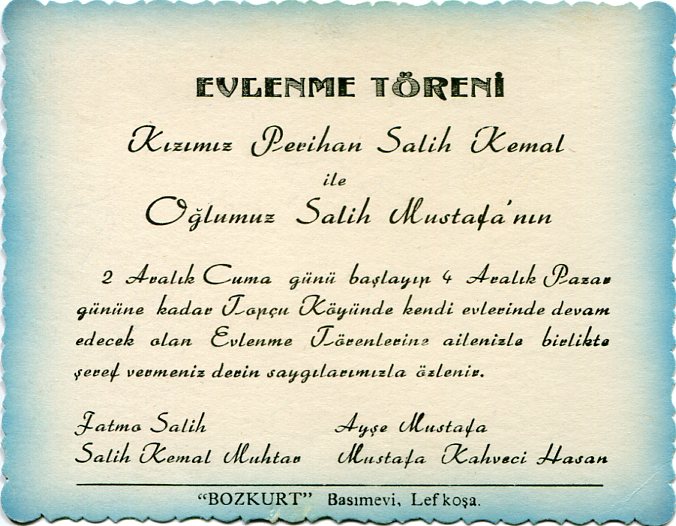 EVLENME TÖRENİ
Kızımız Perihan Salih Kemal
ile
Oğlumuz Salih Mustafa'nın
2 Aralık Cuma günü başlayıp 4 Aralık Pazar
gününe kadar Topçu Köyünde kendi evlerinde devam
edecek olan Evlenme Törenlerine ailenizle birlikte
şeref vermeniz derin saygılarımızla özlenir.
Fatma Salih
Salih Kemal Muhtar
Ayşe Mustafa
Mustafa Kahveci Hasan
"BOZKURT" Basımevi, Lefkoşa.